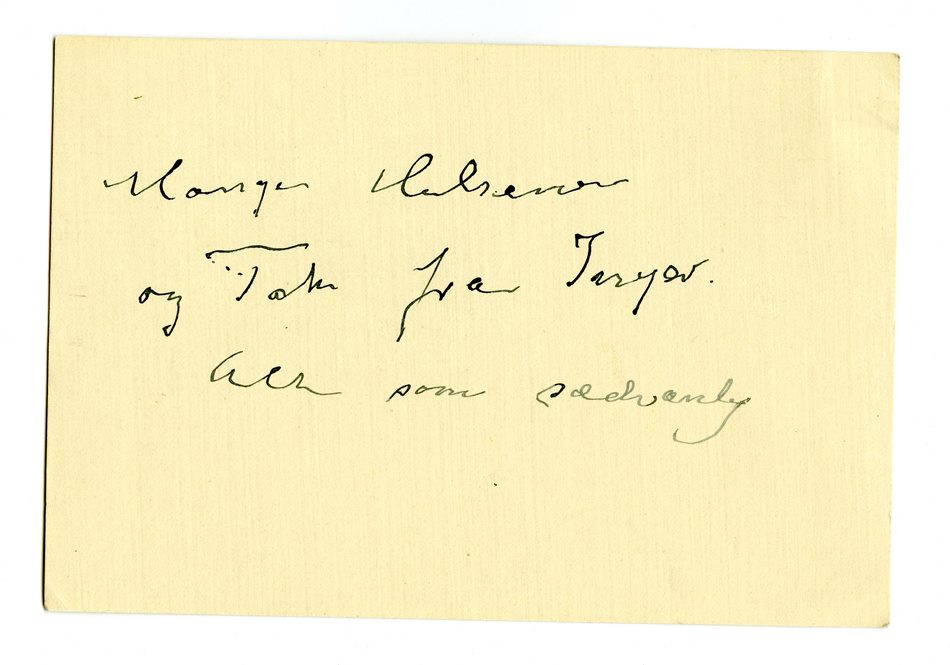 Mange Hilsener
og Tak fra Inger.
Alt som sædvanlig